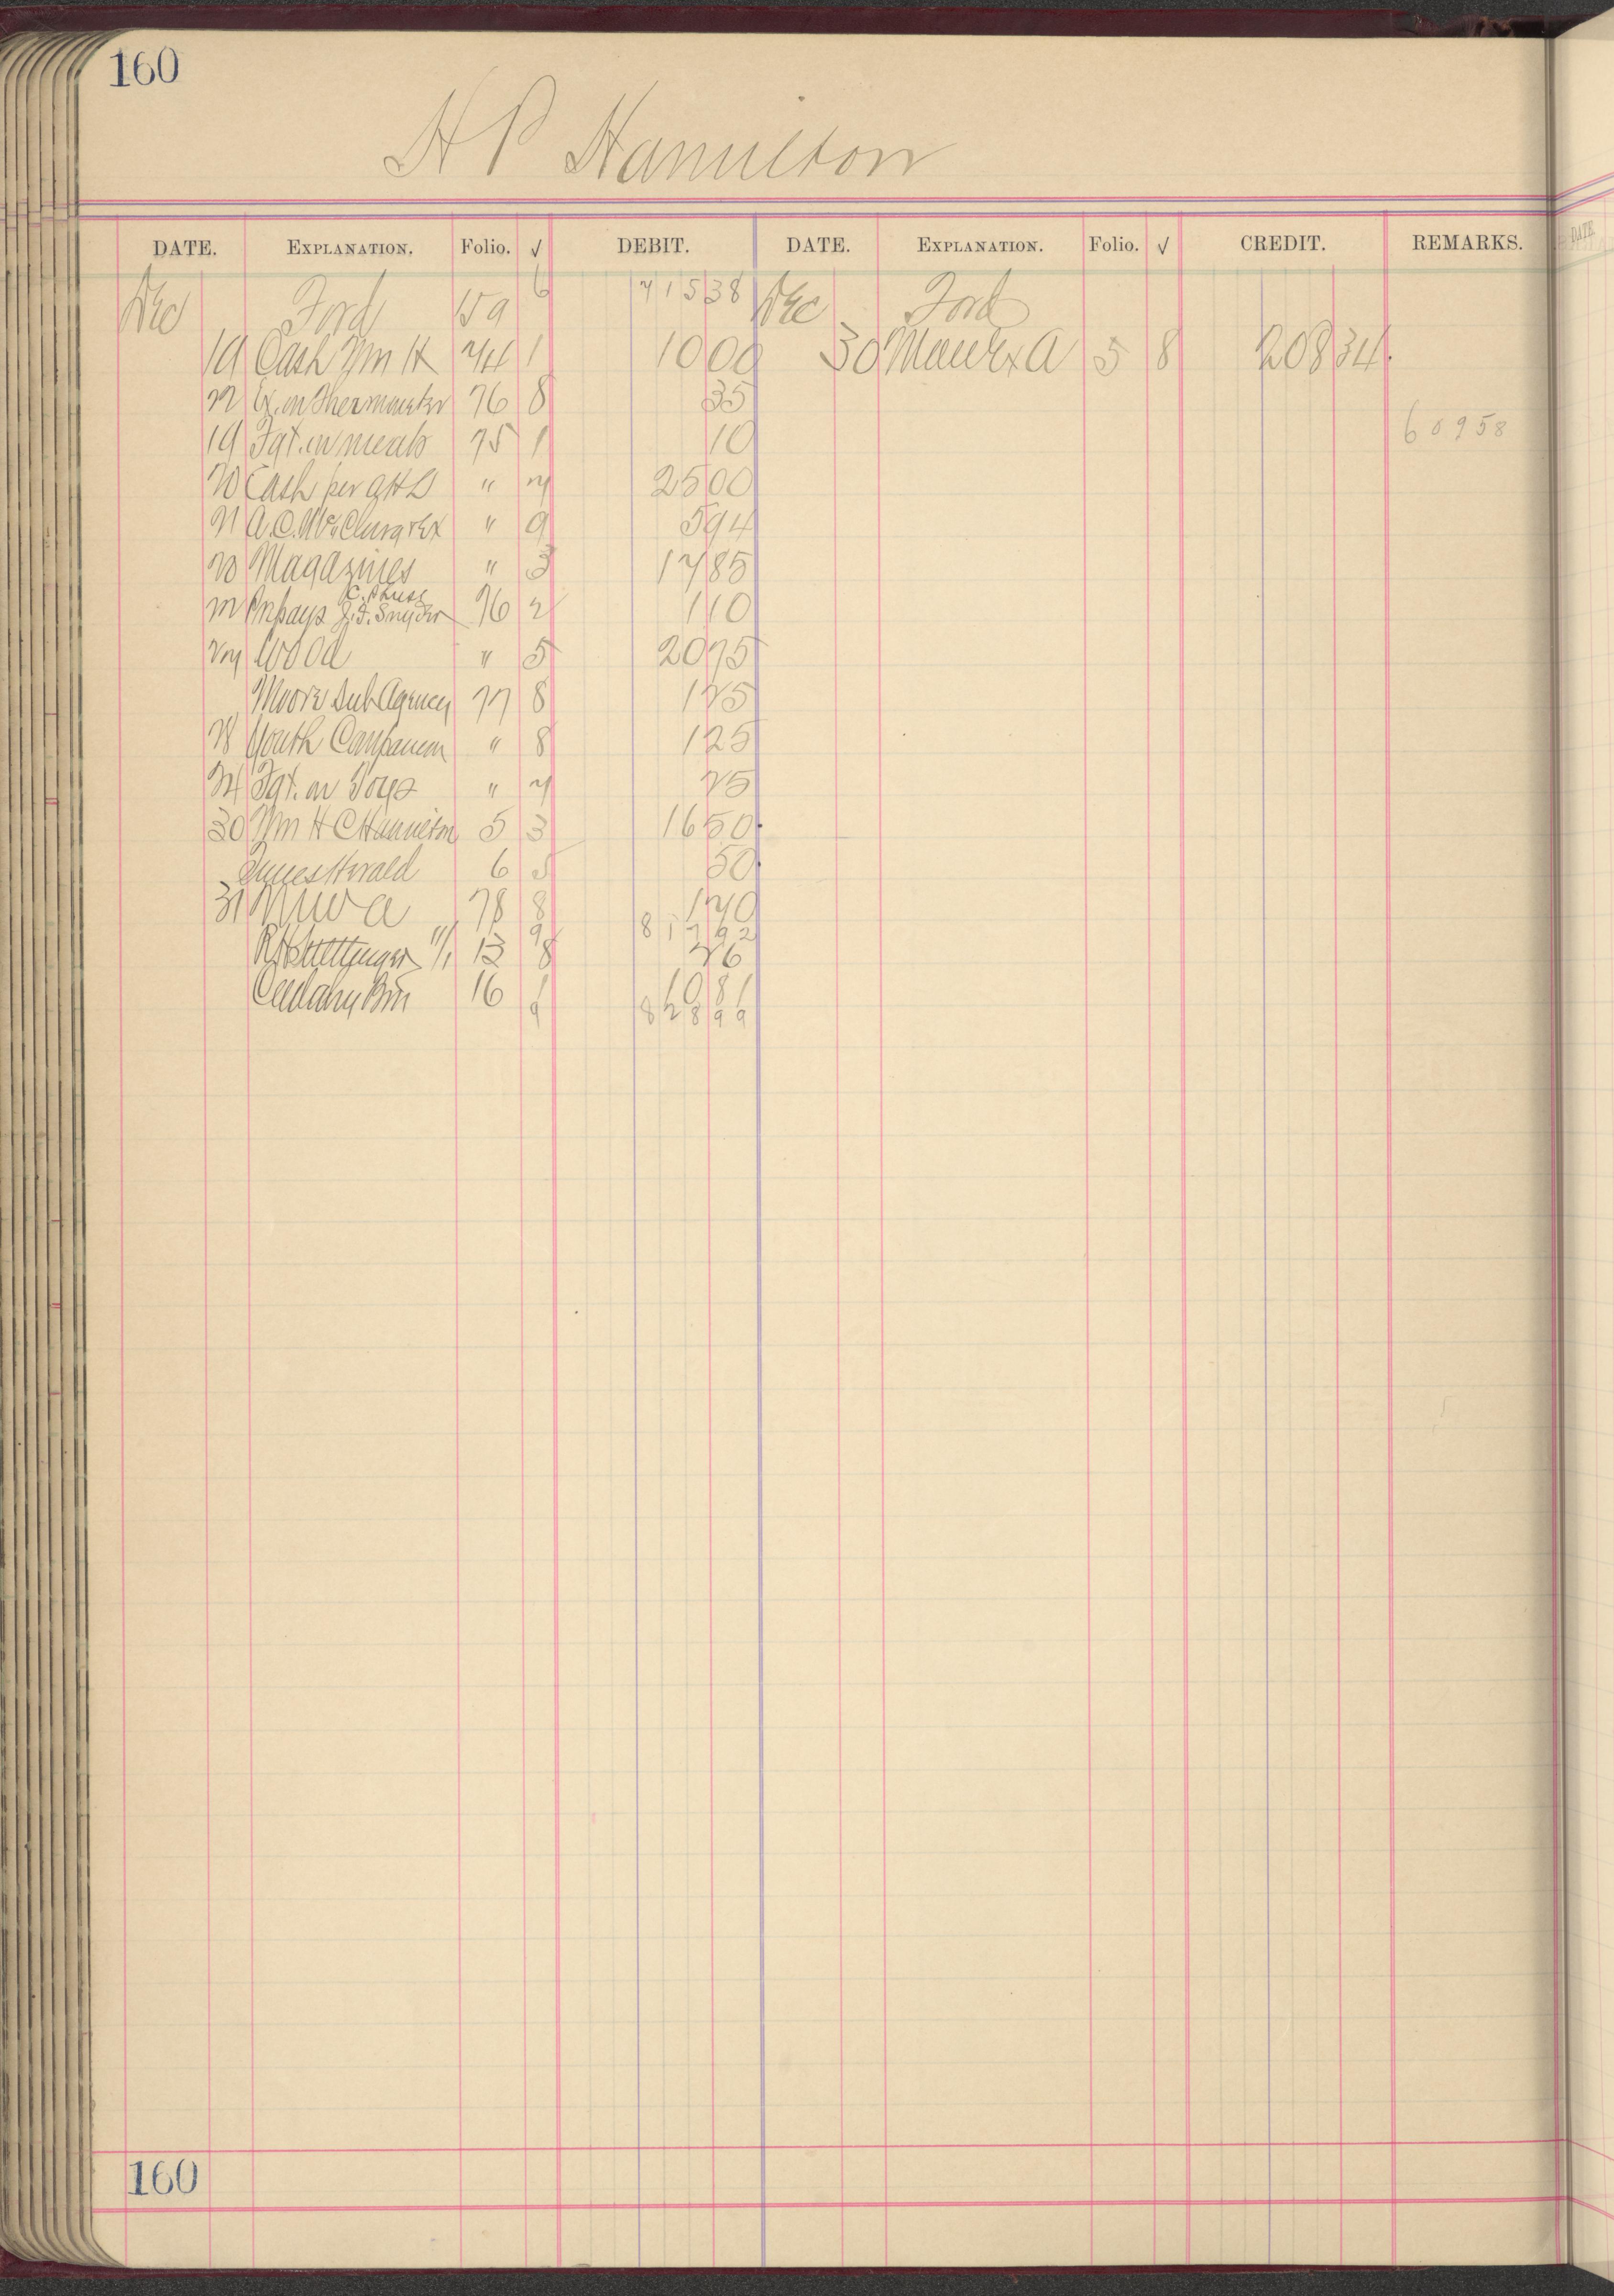 160
H P Hamilton
DATE. EXPLANATION. Folio. √ DEBIT. DATE. EXPLANATION. Folio. √ CREDIT. REMARKS.
Dec Ford 159 6 715 38 Dec Ford
19 Cash Wm H 74 1 10 00 30 5 8 208 34
22 Ex. on Thermometer 76 8 35
609 58
19 Fgt. on meals 75 1 10
20 Cash per " 7 25 00
21 A. C. McClurg " 9 5 94
20 Magazines " 3 17 85
C. Kruse
22 J. F. Snyder 76 2 1 10
27 Wood " 5 20 75
Moore Sub Agency 77 8 1 25
28 Youth Companion " 8 1 25
24 Fgt. on Toys " 7 25
30 Wm H C Hamilton 5 3 16 50
Times Herald 6 5 50
31 M W A 78 8 1 70
9 817 92
11/1 13 8 26
Cudahy Bro 16 1 10 81
9 828 99
160